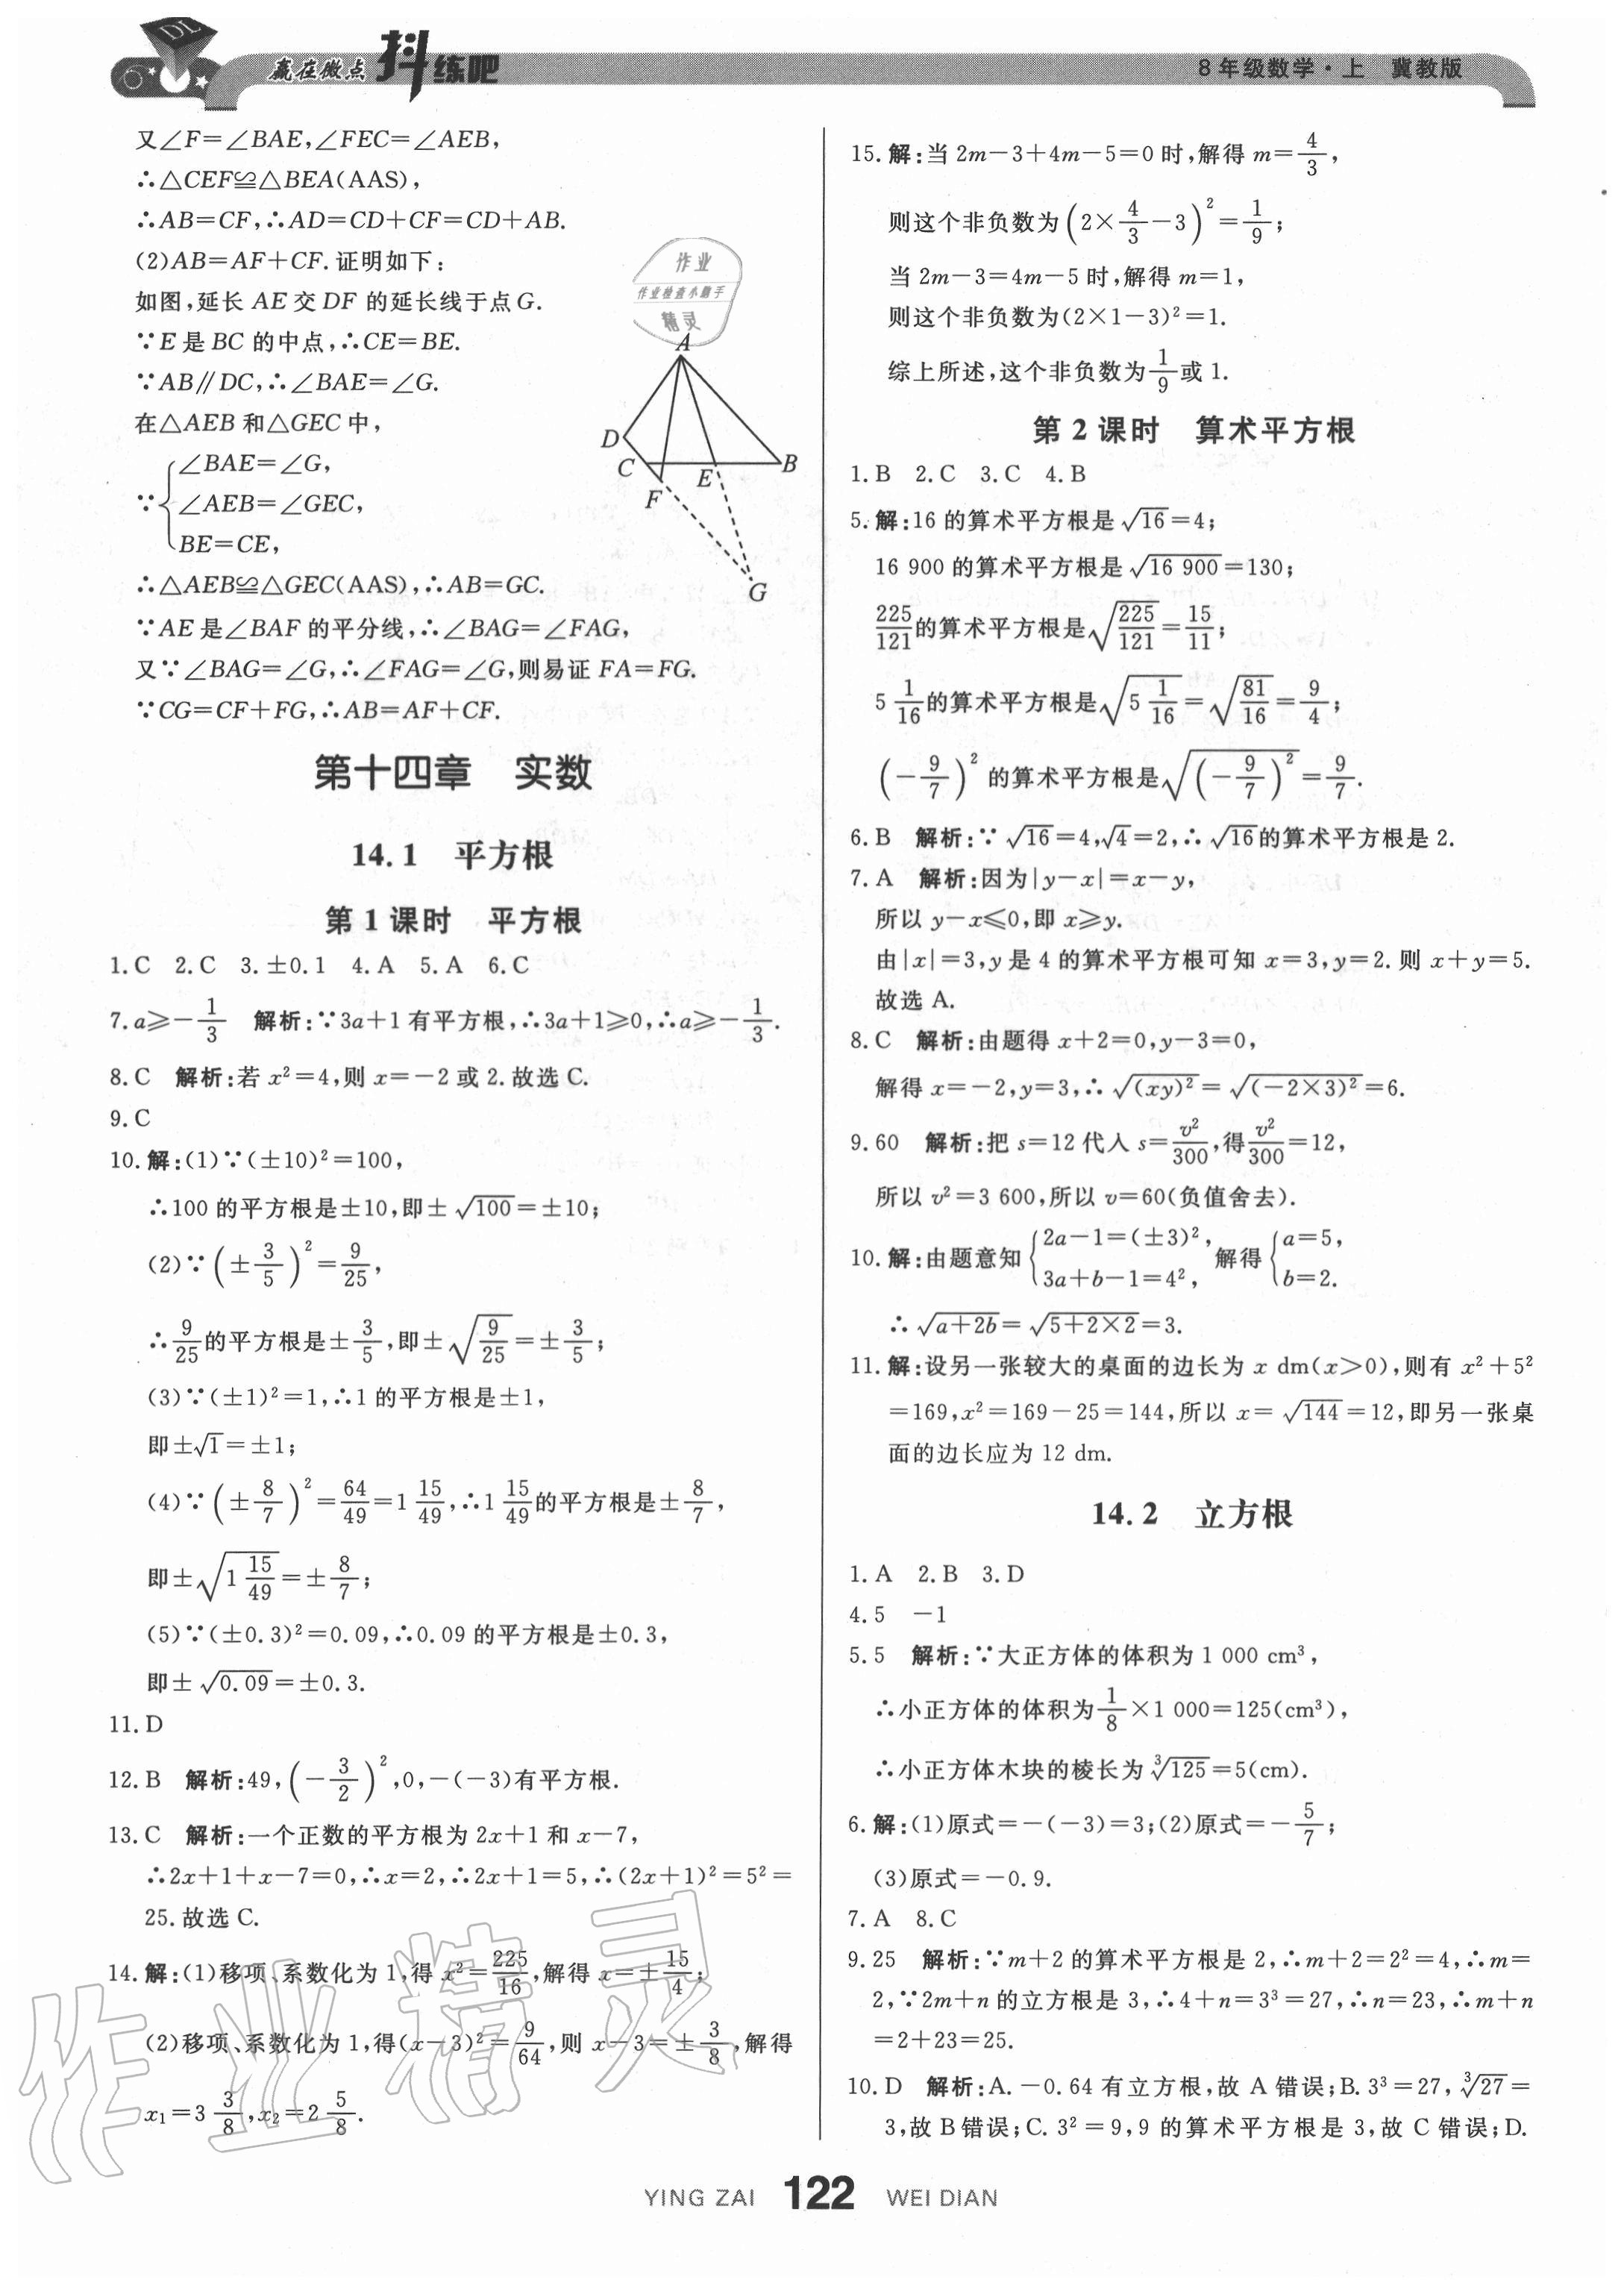 DL
赢在微点 抖练吧
8年级数学·上 冀教版
又∠F=∠BAE,∠FEC=∠AEB,
∴△CEF≌△BEA(AAS),
∴AB=CF,∴AD=CD+CF=CD+AB.
(2)AB=AF+CF.证明如下:
如图,延长 AE 交 DF 的延长线于点 G.
∵E 是 BC 的中点,∴CE=BE.
∵AB∥DC,∴∠BAE=∠G.
在△AEB 和△GEC 中,
∵{∠BAE=∠G,
∠AEB=∠GEC,
BE=CE,
∴△AEB≌△GEC(AAS),∴AB=GC.
∵AE 是∠BAF 的平分线,∴∠BAG=∠FAG,
又∵∠BAG=∠G,∴∠FAG=∠G,则易证 FA=FG.
∵CG=CF+FG,∴AB=AF+CF.
作业
作业检查小助手
精灵
A
D
C
E
B
F
G
第十四章 实数
14.1 平方根
第1课时 平方根
1.C 2.C 3.±0.1 4.A 5.A 6.C
7.a≥-1/3 解析:∵3a+1 有平方根,∴3a+1≥0,∴a≥-1/3.
8.C 解析:若 x²=4,则 x=-2 或 2.故选 C.
9.C
10.解:(1)∵(±10)²=100,
∴100 的平方根是±10,即±√100=±10;
(2)∵(±3/5)²=9/25,
∴9/25的平方根是±3/5,即±√(9/25)=±3/5;
(3)∵(±1)²=1,∴1 的平方根是±1,
即±√1=±1;
(4)∵(±8/7)²=64/49=1 15/49,∴1 15/49的平方根是±8/7,
即±√(1 15/49)=±8/7;
(5)∵(±0.3)²=0.09,∴0.09 的平方根是±0.3,
即±√0.09=±0.3.
11.D
12.B 解析:49,(-3/2)²,0,-(-3)有平方根.
13.C 解析:一个正数的平方根为 2x+1 和 x-7,
∴2x+1+x-7=0,∴x=2,∴2x+1=5,∴(2x+1)²=5²=
25.故选 C.
14.解:(1)移项、系数化为 1,得 x²=225/16,解得 x=±15/4;
(2)移项、系数化为 1,得(x-3)²=9/64,则 x-3=±3/8,解得
x₁=3 3/8,x₂=2 5/8.
15.解:当 2m-3+4m-5=0 时,解得 m=4/3,
则这个非负数为(2×4/3-3)²=1/9;
当 2m-3=4m-5 时,解得 m=1,
则这个非负数为(2×1-3)²=1.
综上所述,这个非负数为1/9或 1.
第2课时 算术平方根
1.B 2.C 3.C 4.B
5.解:16 的算术平方根是√16=4;
16 900 的算术平方根是√16 900=130;
225/121的算术平方根是√(225/121)=15/11;
5 1/16的算术平方根是√(5 1/16)=√(81/16)=9/4;
(-9/7)² 的算术平方根是√((-9/7)²)=9/7.
6.B 解析:∵√16=4,√4=2,∴√16的算术平方根是 2.
7.A 解析:因为|y-x|=x-y,
所以 y-x≤0,即 x≥y.
由|x|=3,y 是 4 的算术平方根可知 x=3,y=2.则 x+y=5.
故选 A.
8.C 解析:由题得 x+2=0,y-3=0,
解得 x=-2,y=3,∴√((xy)²)=√((-2×3)²)=6.
9.60 解析:把 s=12 代入 s=v²/300,得v²/300=12,
所以 v²=3 600,所以 v=60(负值舍去).
10.解:由题意知{2a-1=(±3)², 3a+b-1=4², 解得{a=5, b=2.
∴√(a+2b)=√(5+2×2)=3.
11.解:设另一张较大的桌面的边长为 x dm(x>0),则有 x²+5²
=169,x²=169-25=144,所以 x=√144=12,即另一张桌
面的边长应为 12 dm.
14.2 立方根
1.A 2.B 3.D
4.5 -1
5.5 解析:∵大正方体的体积为 1 000 cm³,
∴小正方体的体积为1/8×1 000=125(cm³),
∴小正方体木块的棱长为∛125=5(cm).
6.解:(1)原式=-(-3)=3;(2)原式=-5/7;
(3)原式=-0.9.
7.A 8.C
9.25 解析:∵m+2 的算术平方根是 2,∴m+2=2²=4,∴m=
2,∵2m+n 的立方根是 3,∴4+n=3³=27,∴n=23,∴m+n
=2+23=25.
10.D 解析:A.-0.64 有立方根,故 A 错误;B.3³=27,∛27=
3,故 B 错误;C.3²=9,9 的算术平方根是 3,故 C 错误;D.
作业精灵
YING ZAI 122 WEI DIAN